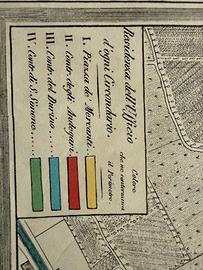 Residenza dell'Uffizio
d'ogni Circondario.
Colore
che ne contorna
il Perimetro
I. Piazza de' Mercanti.
II. Contr. degli Andegari.
III. Contr. del Durino
IV. Contr. di S. Simone